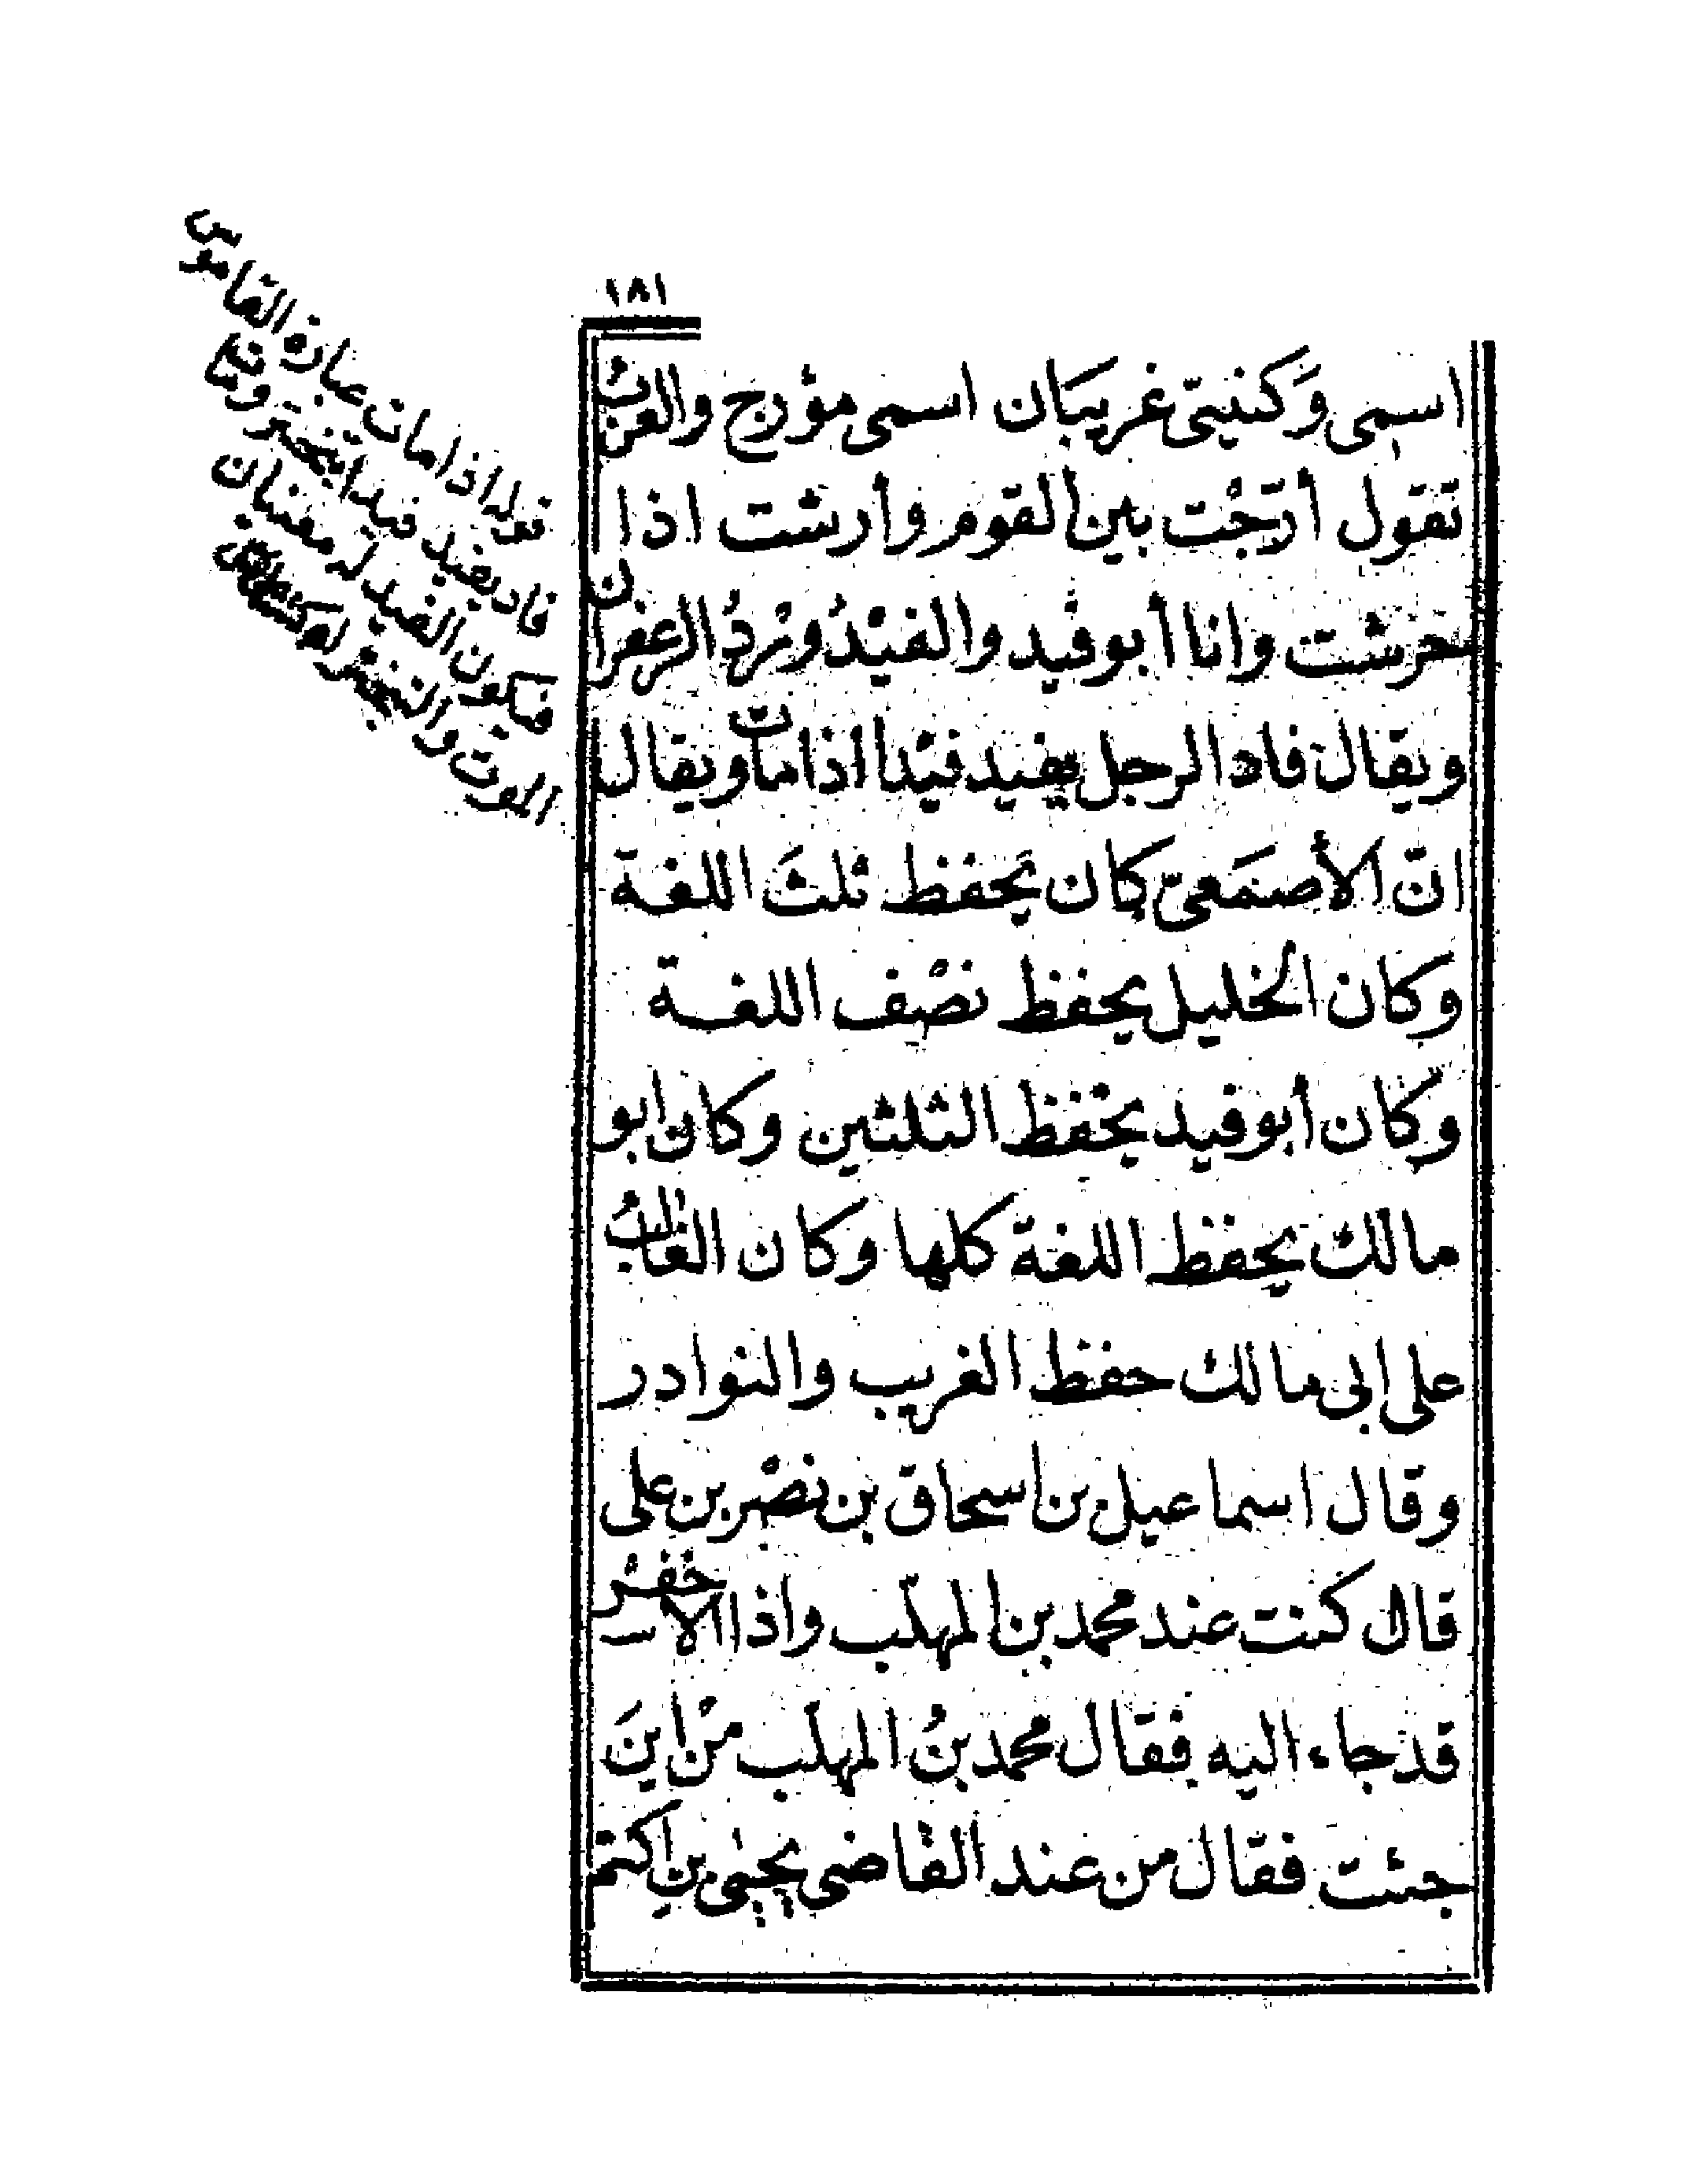 ١٨١
اسمى وَكنيتى غريبَان اسمى مؤرج والعرب
تقول أرّجْت بين القوم وأرشت اذا
حرشت وانا أبو فيد والفيْدُ ورْدُ الزعفران
ويقال فاد الرجل يفيد فيْدا اذا مات ويقال
انّ الأصمَعىّ كان يحفظ ثلثَ اللغة
وكان الخليل يحفظ نصْف اللغة
وكان أبو فيد يحْفظ الثلثين وكان ابو
مالك يحفظ اللغة كلها وكان الغالبُ
على ابى مالك حفظ الغريب والنوادر
وقال اسماعيل بن اسحاق بن نصْر بن على
قال كنت عند محمد بن المهلّب واذا الاخفش
قد جاء اليه فقال محمد بنُ المهلّب منْ اينَ
جئت فقال من عند القاضى يحيى بن اكثم
قوله اذا مات عبارة القاموس
فاد يفيد فيدا تبختر ومات
فيكون الفيد له معنيان
الموت والتبختر اه